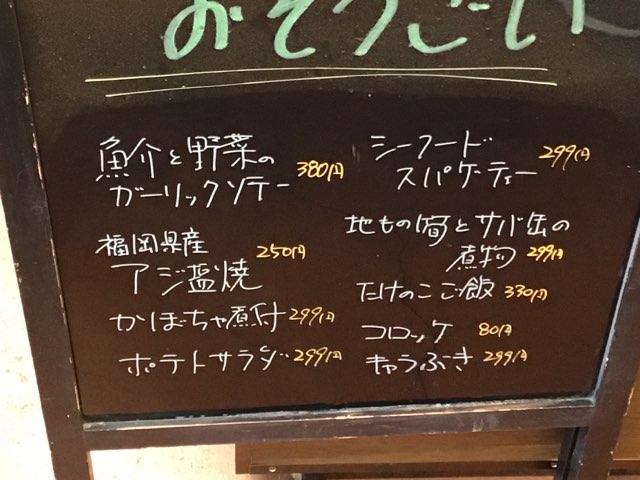 おそうざい
魚介と野菜の
ガーリックソテー 380円
福岡県産 250円
アジ塩焼
かぼちゃ煮付 299円
ポテトサラダ 299円
シーフード 299円
スパゲティー
地もの筍とサバ缶の
煮物 299円
たけのこご飯 330円
コロッケ 80円
キャラぶき 299円